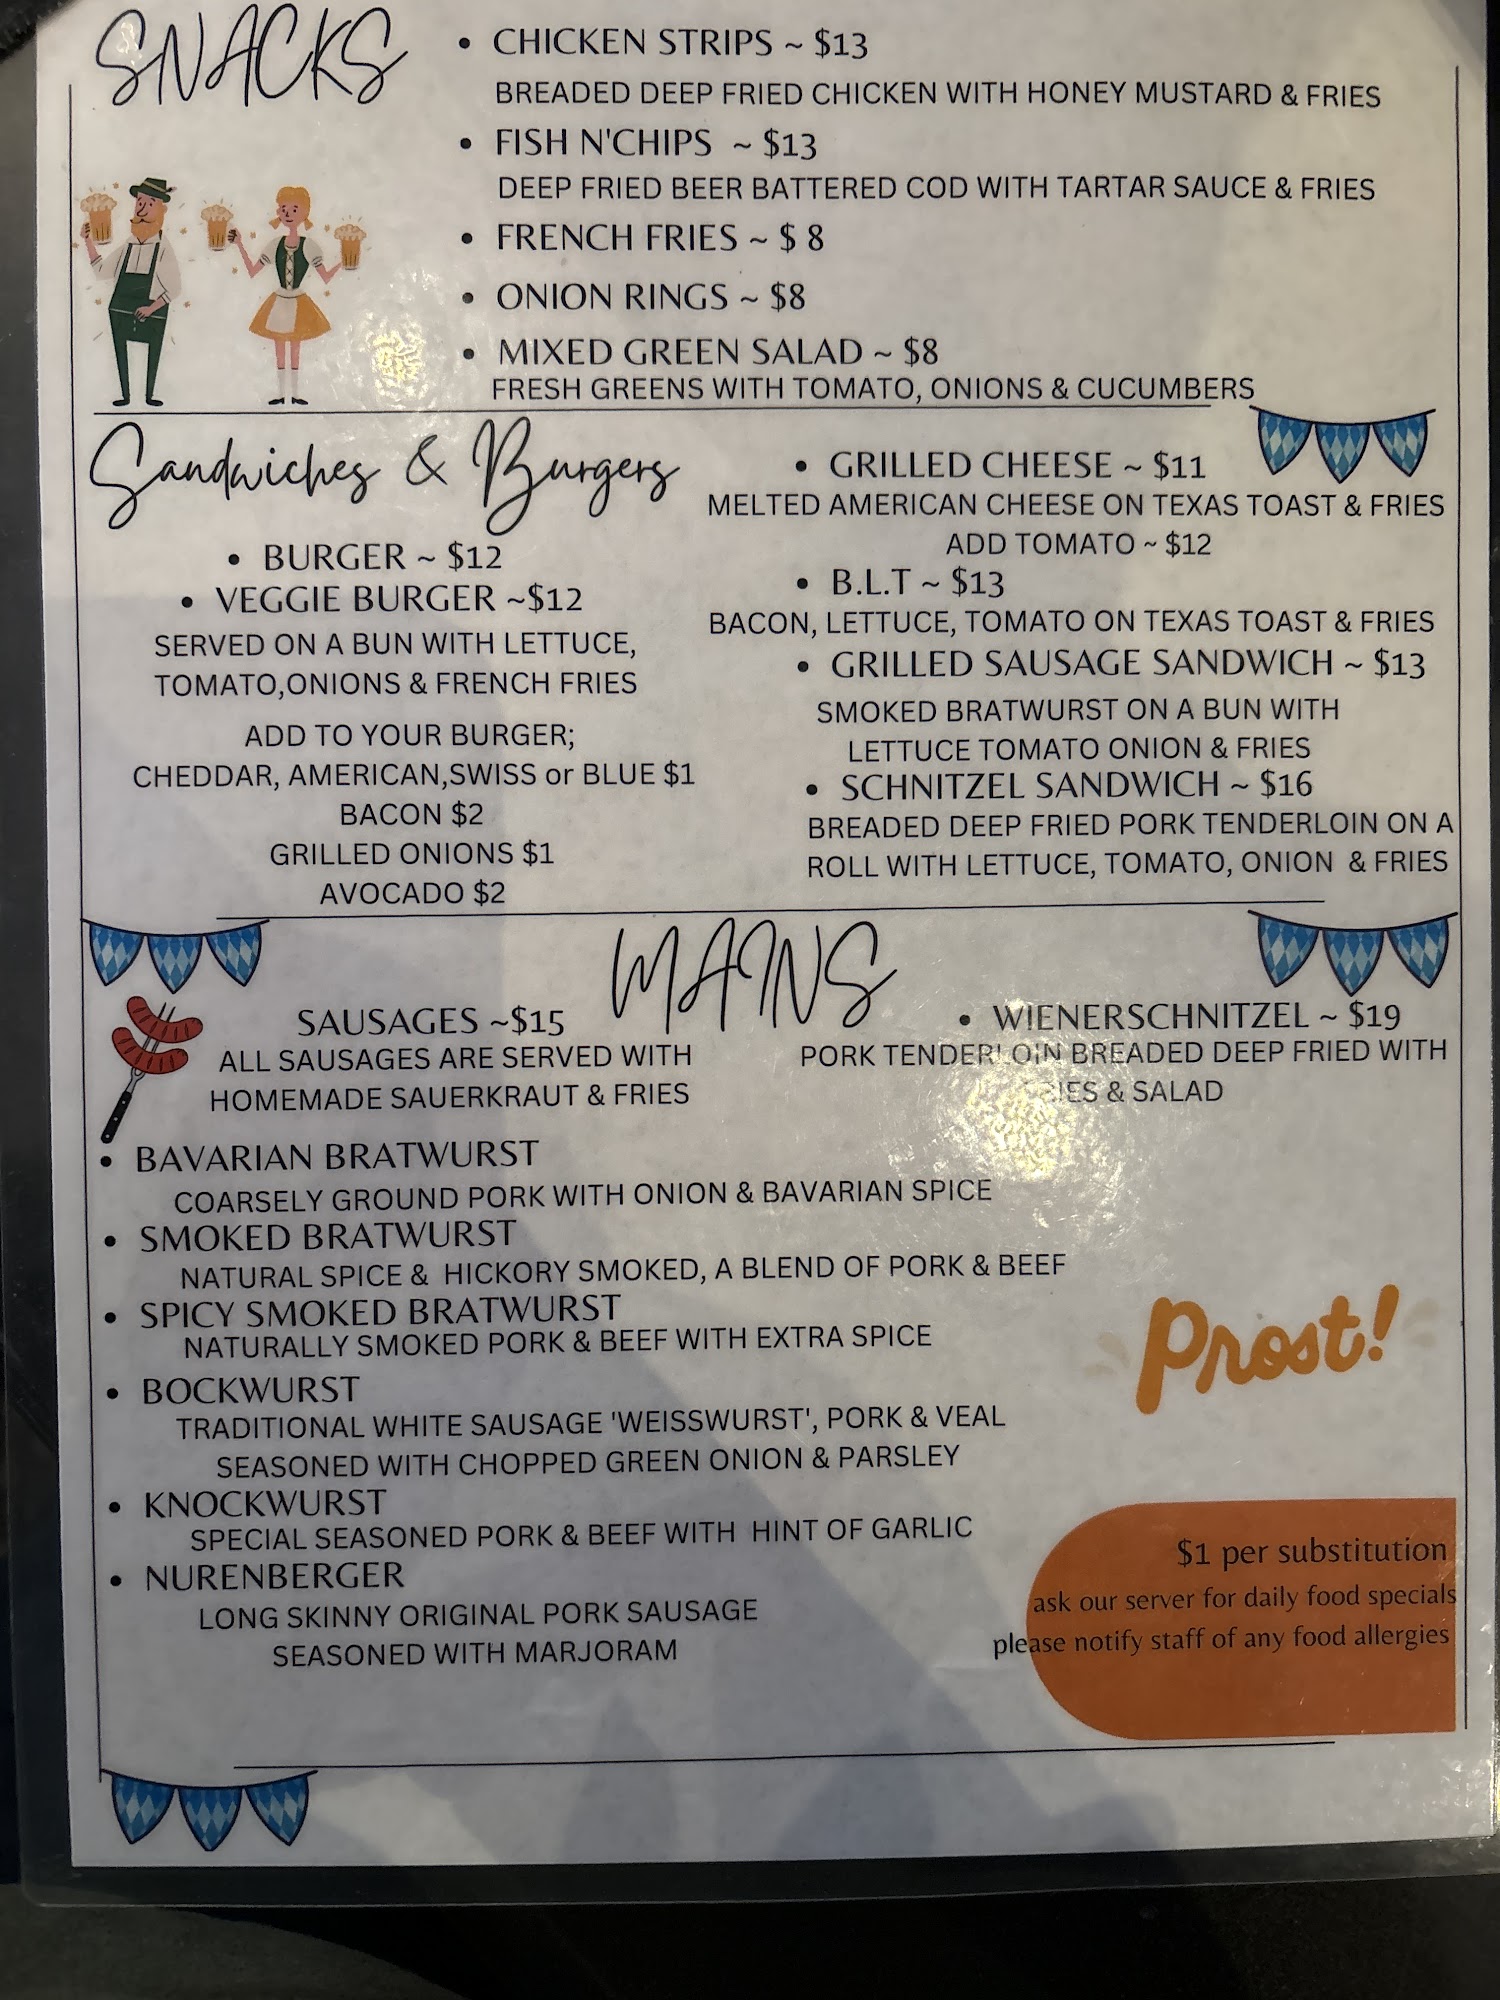 SNACKS
• CHICKEN STRIPS ~ $13
BREADED DEEP FRIED CHICKEN WITH HONEY MUSTARD & FRIES
• FISH N'CHIPS ~ $13
DEEP FRIED BEER BATTERED COD WITH TARTAR SAUCE & FRIES
• FRENCH FRIES ~ $ 8
• ONION RINGS ~ $8
• MIXED GREEN SALAD ~ $8
FRESH GREENS WITH TOMATO, ONIONS & CUCUMBERS
Sandwiches & Burgers
• BURGER ~ $12
• VEGGIE BURGER ~$12
SERVED ON A BUN WITH LETTUCE,
TOMATO,ONIONS & FRENCH FRIES
ADD TO YOUR BURGER;
CHEDDAR, AMERICAN,SWISS or BLUE $1
BACON $2
GRILLED ONIONS $1
AVOCADO $2
• GRILLED CHEESE ~ $11
MELTED AMERICAN CHEESE ON TEXAS TOAST & FRIES
ADD TOMATO ~ $12
• B.L.T ~ $13
BACON, LETTUCE, TOMATO ON TEXAS TOAST & FRIES
• GRILLED SAUSAGE SANDWICH ~ $13
SMOKED BRATWURST ON A BUN WITH
LETTUCE TOMATO ONION & FRIES
• SCHNITZEL SANDWICH ~ $16
BREADED DEEP FRIED PORK TENDERLOIN ON A
ROLL WITH LETTUCE, TOMATO, ONION & FRIES
MAINS
SAUSAGES ~$15
ALL SAUSAGES ARE SERVED WITH
HOMEMADE SAUERKRAUT & FRIES
• BAVARIAN BRATWURST
COARSELY GROUND PORK WITH ONION & BAVARIAN SPICE
• SMOKED BRATWURST
NATURAL SPICE & HICKORY SMOKED, A BLEND OF PORK & BEEF
• SPICY SMOKED BRATWURST
NATURALLY SMOKED PORK & BEEF WITH EXTRA SPICE
• BOCKWURST
TRADITIONAL WHITE SAUSAGE 'WEISSWURST', PORK & VEAL
SEASONED WITH CHOPPED GREEN ONION & PARSLEY
• KNOCKWURST
SPECIAL SEASONED PORK & BEEF WITH HINT OF GARLIC
• NURENBERGER
LONG SKINNY ORIGINAL PORK SAUSAGE
SEASONED WITH MARJORAM
• WIENERSCHNITZEL ~ $19
PORK TENDERLOIN BREADED DEEP FRIED WITH
FRIES & SALAD
Prost!
$1 per substitution
ask our server for daily food specials
please notify staff of any food allergies